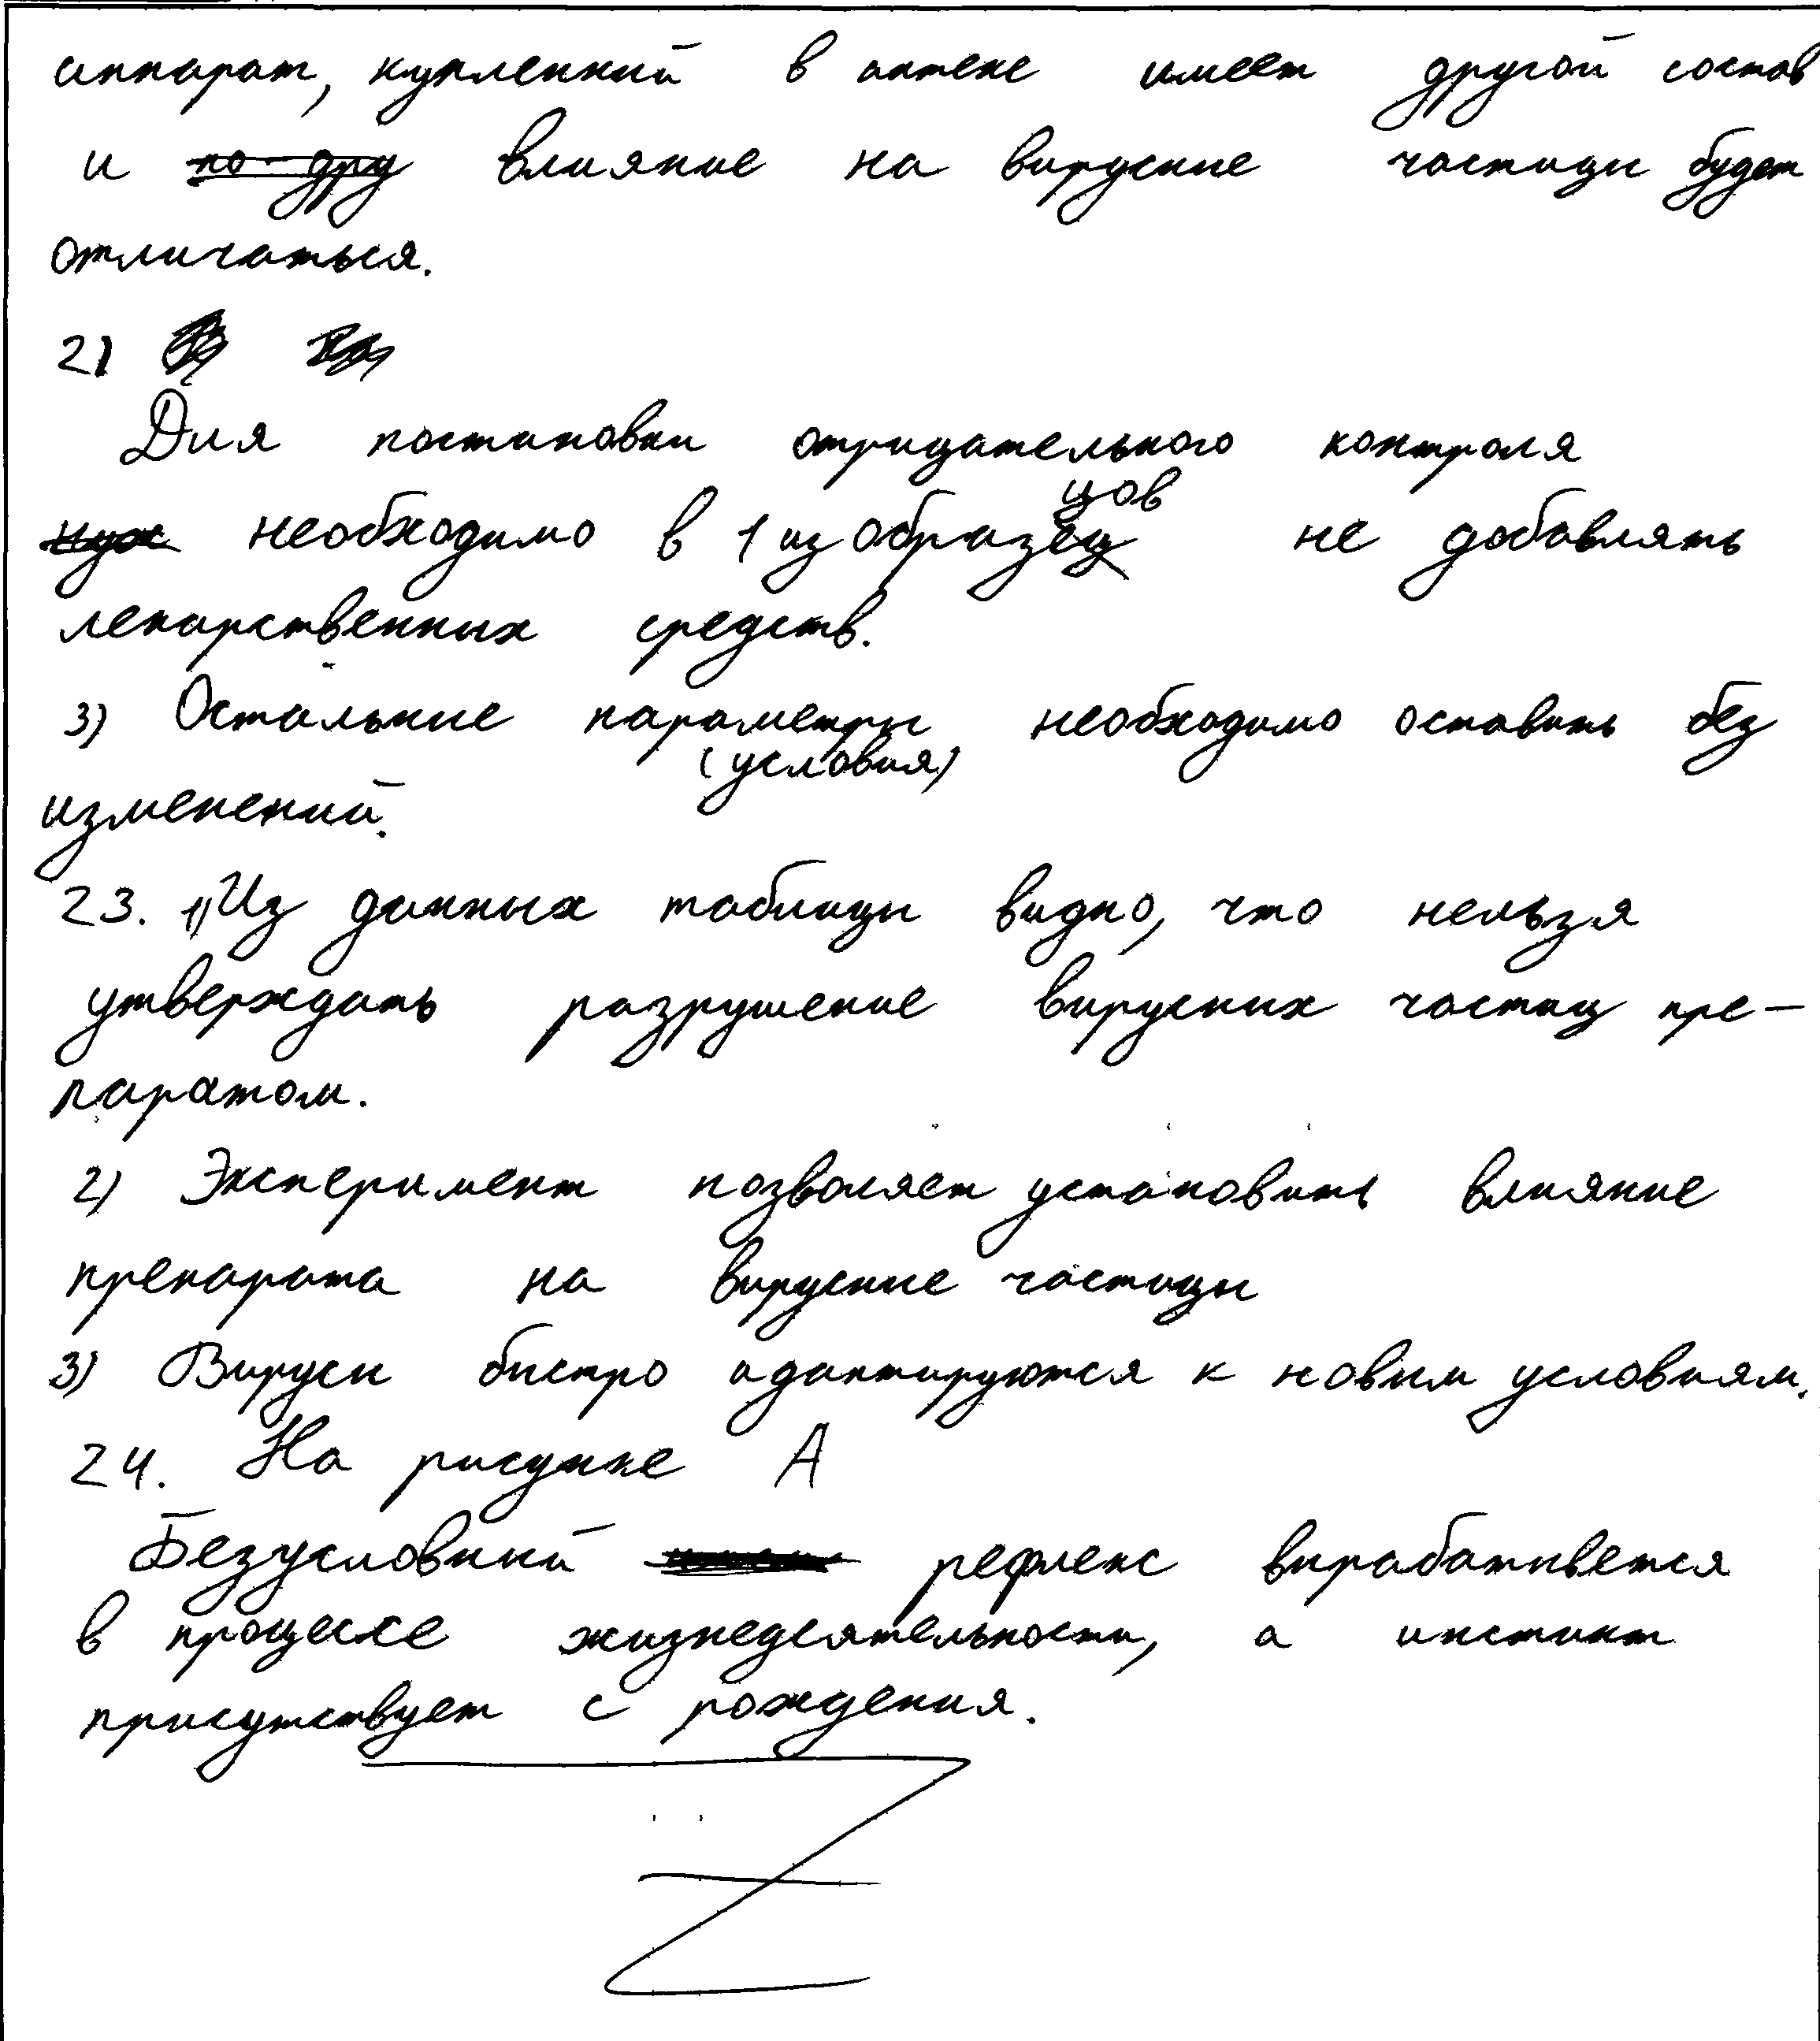 аппарат, купленный в аптеке имеет другой состав
и по-дру влияние на вирусные частицы будет
отличаться.
2)
Для постановки отрицательного контроля
нуж необходимо в 1 из образцов не добавлять
лекарственных средств.
3) Остальные параметры (условия) необходимо оставить без
изменений.
23. 1) Из данных таблицы видно, что нельзя
утверждать разрушение вирусных частиц пре-
паратом.
2) Эксперимент позволяет установить влияние
препарата на вирусные частицы
3) Вирусы быстро адаптируются к новым условиям.
24. На рисунке А
Безусловный рефлекс вырабатывется
в процессе жизнедеятельности, а инстинкт
присутствует с рождения.
Z